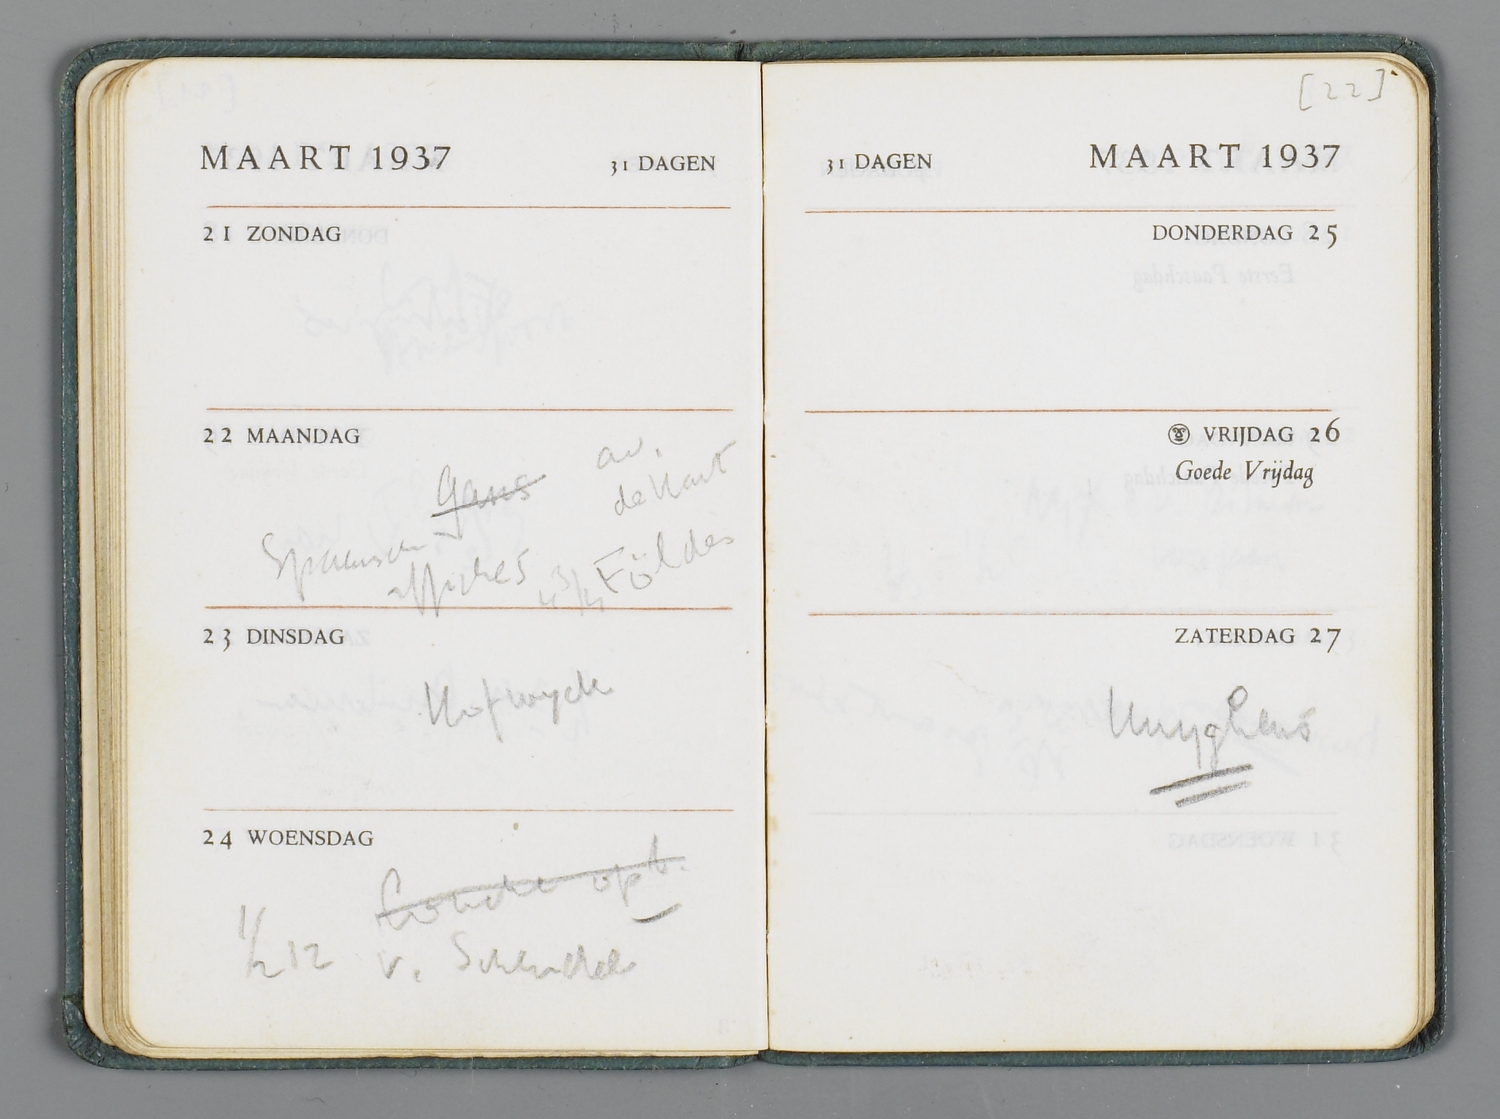 MAART 1937 31 DAGEN
21 ZONDAG
22 MAANDAG
av.
Gans
de Kant
Spaansche
affiches Földes
23 DINSDAG
Hofwyck
24 WOENSDAG
1/2 12 v.
[22]
31 DAGEN MAART 1937
DONDERDAG 25
VRIJDAG 26
Goede Vrijdag
ZATERDAG 27
Huyghens